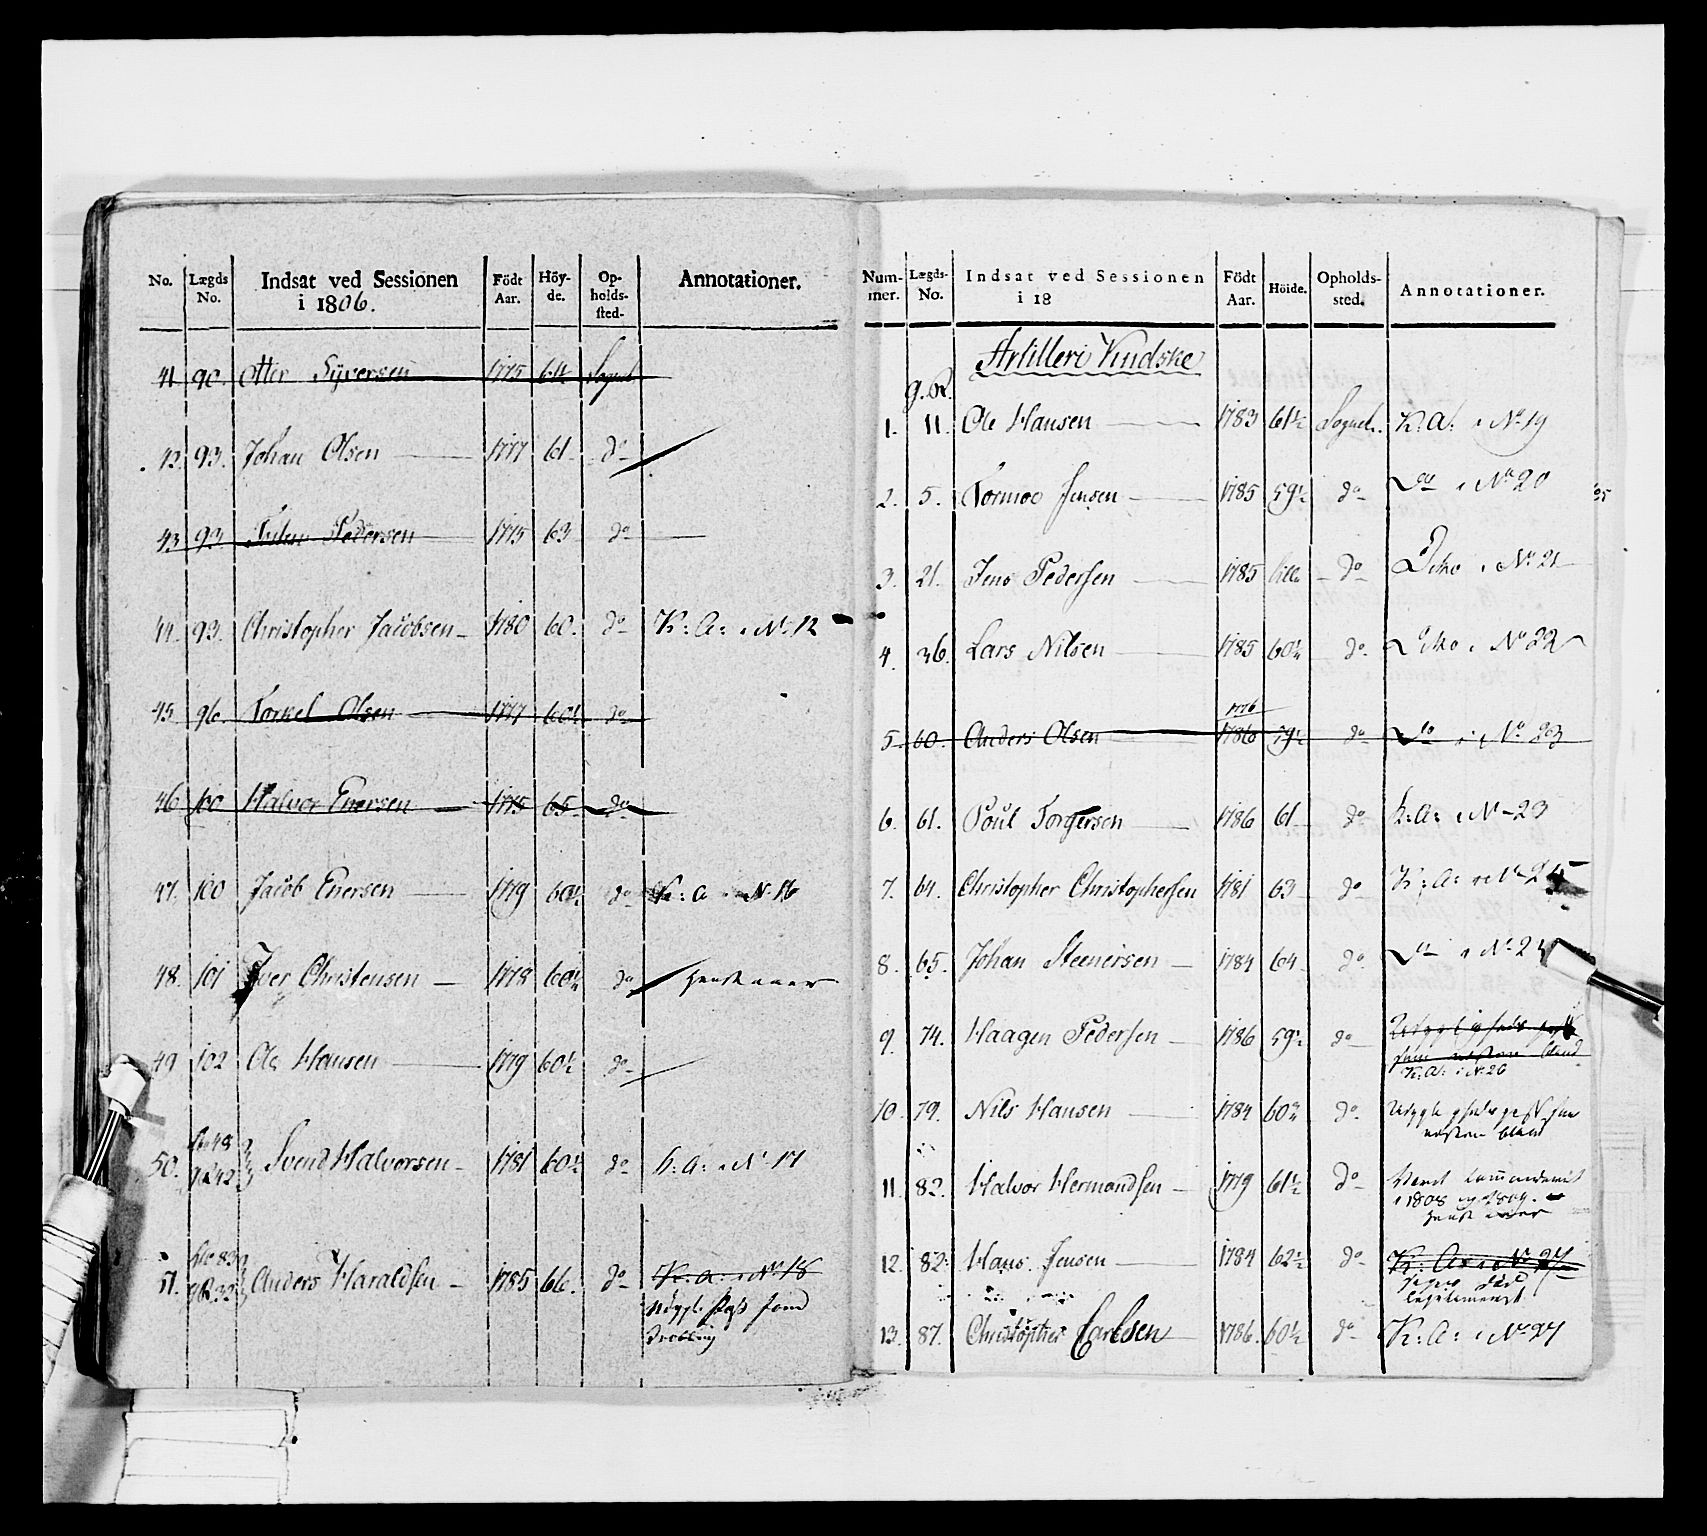 No. Lægds No. Indsat ved Sessionen i 1806. Födt Aar. Höy-de. Op-holds-sted- Annotationer.
41 90. Otter Syversen 1775 64 Sognet
42. 93. Johan Olsen 1777 61 do
43 93. Pedersen 1775 63 do
44. 93. Christopher Jacobsen 1780 60. do K: A: i No. 12
45 96. Torkel Olsen 1777 60½ do
46 100 Halvor Enersen 1775 65 do
47. 100 Jacob Enersen 1779 60½ do K: A i No 16
48. 101 Iver Christensen 1778 60½ do
49 102 Ole Hansen 1779 60½ do
50. 48 42 Svend Halvorsen 1781 60½ do K: A: i No. 17
51. 83 33 Anders Haraldsen 1785 66. do K: A: i No. 18
Num-mer. Lægds-No. Indsat ved Sessionen i 18 Födt Aar. Höide. Opholds-sted. Annotationer.
Artilleri Kudske
g. R.
1. 11. Ole Hansen 1783 61½ Sognet. K: A: i No. 19
2. 5. Tormoe Jensen 1785 59½ do Do i No. 20
3. 21. Jens Pedersen 1785 do Dito i No. 21
4. 36. Lars Nilsen 1785 60¾ do. Dito i No 22
1776
5. 60. Anders Olsen 1786 79½ do Do i No. 23
6. 61. Poul Torgersen 1786 61 do K: A: i No 23
7. 64. Christopher Christophersen 1781 63 do K: A: i No 24
8. 65. Johan Steenersen 1784 64 do. Do i No. 25
9. 74. Haagen Pedersen 1786 59½ do
K: A: i No. 26
10. 79. Nils Hansen 1784 60¾ do.
11. 82. Halvor Hermandsen 1779 61½ do
i 1808 og 1809.
12. 82. Hans Jensen 1784 62½ do K: A: i No 27
13. 87. Christopher Carlsen 1786. 60½ do K: A: i No 27